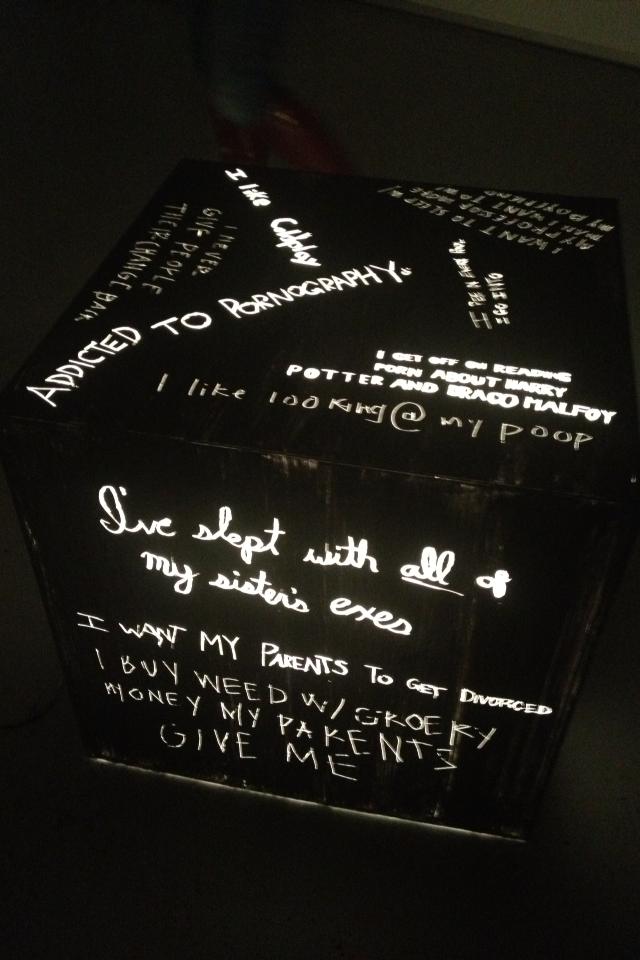 I like Coldplay
I NEVER
GIVE PEOPLE
THEIR CHANGE BACK
ADDICTED TO PORNOGRAPHY
I WANT TO SLEEP W/
I PEE IN EVERY
I GO INTO
I GET OFF ON READING
PORN ABOUT HARRY
POTTER AND DRACO MALFOY
I like looking @ my poop
I've slept with all of
my sister's exes
I WANT MY PARENTS TO GET DIVORCED
I BUY WEED W/ GROERY
MONEY MY PARENTS
GIVE ME